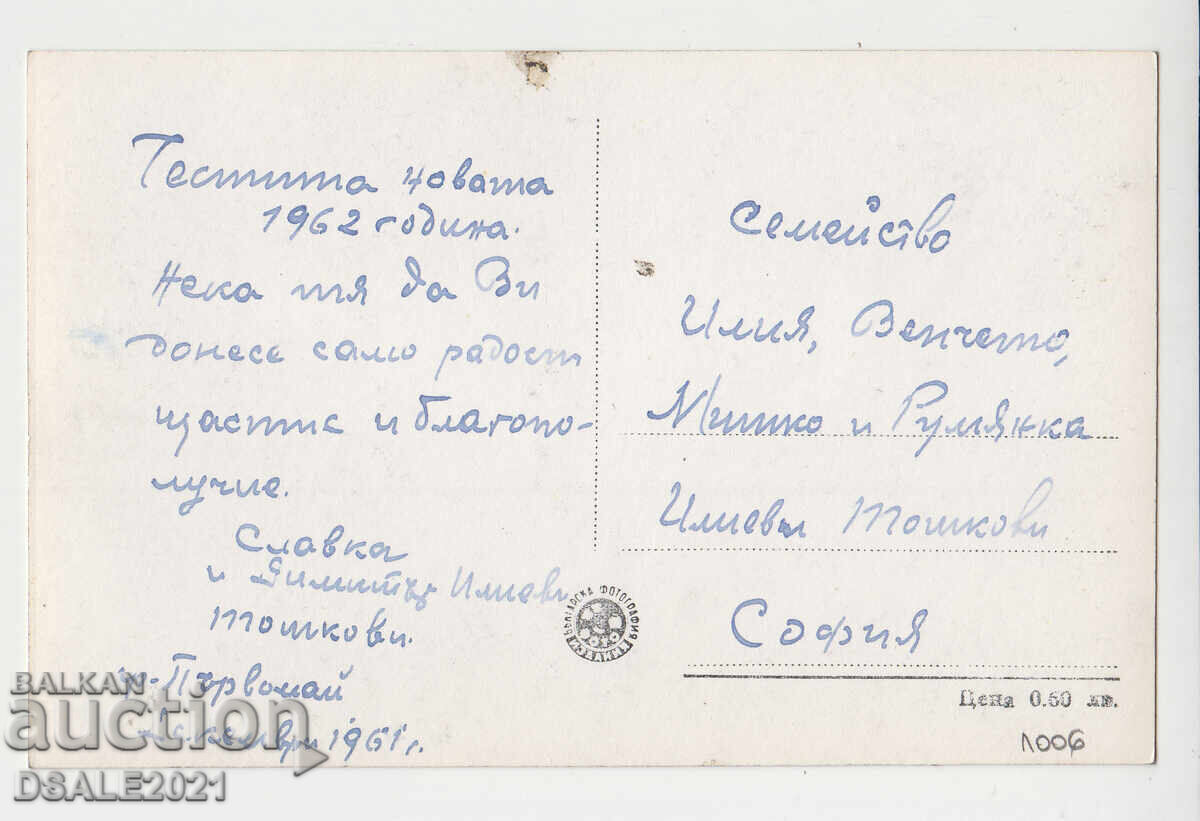 Честита новата
1962 година.
Нека тя да Ви
донесе само радост
щастие и благопо-
лучие.
Славка
и Димитър Илиеви
Тошкови.
Първомай
Декември 1961 г.
Семейство
Илия, Венчето,
Митко и Румянка
Илиеви Тошкови
София
БЪЛГАРСКА ФОТОГРАФИЯ
Цена 0.50 лв.
1006
BALKAN
auction
DSALE2021